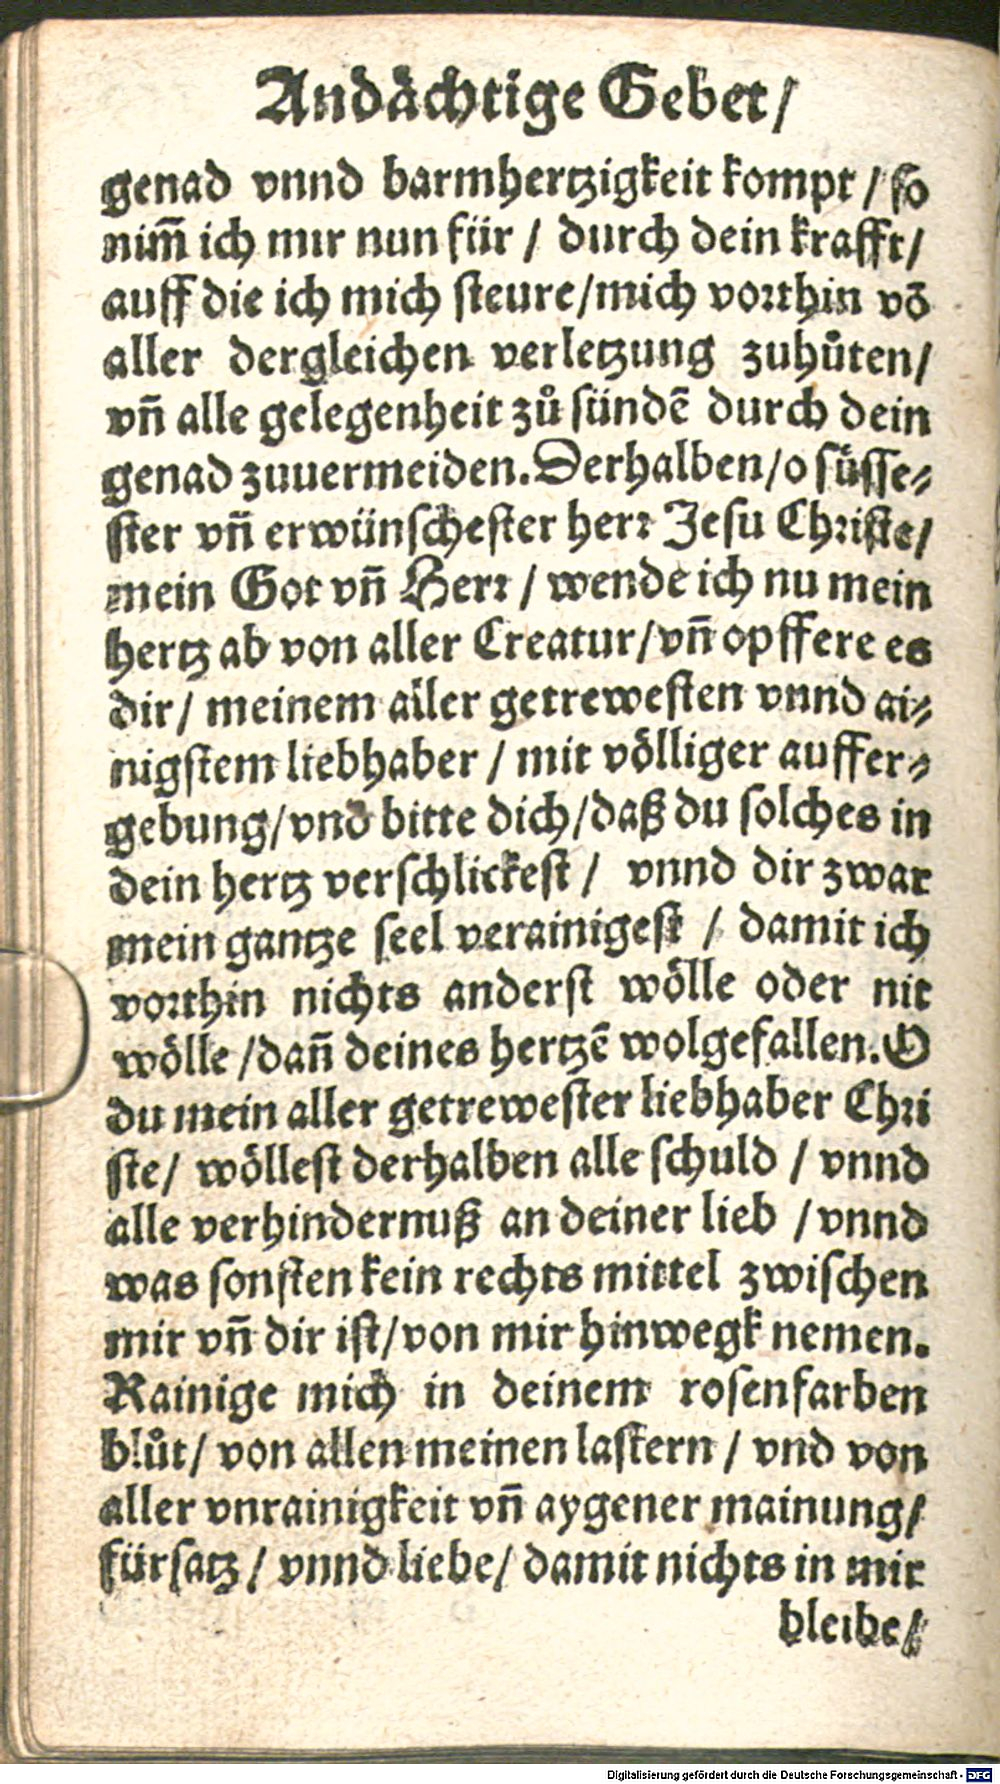 Andächtige Gebet/
genad vnnd barmhertzigkeit kompt / so
nim̃ ich mir nun für / durch dein krafft/
auff die ich mich steure/mich vorthin võ
aller dergleichen verletzung zuhuͤten/
vñ alle gelegenheit zuͦ sündẽ durch dein
genad zuuermeiden. Derhalben/o süsse⸗
ster vñ erwünschester herr Jesu Christe/
mein Got vñ Herr / wende ich nu mein
hertz ab von aller Creatur/vñ opffere es
dir/ meinem aller getrewesten vnnd ai⸗
nigstem liebhaber / mit völliger auffer⸗
gebung/vnd bitte dich/daß du solches in
dein hertz verschlickest / vnnd dir zwar
mein gantze seel verainigest / damit ich
vorthin nichts anderst wölle oder nit
wölle /dañ deines hertzẽ wolgefallen. O
du mein aller getrewester liebhaber Chri
ste/ wöllest derhalben alle schuld / vnnd
alle verhindernuß an deiner lieb / vnnd
was sonsten kein rechts mittel zwischen
mir vñ dir ist/von mir hinwegk nemen.
Rainige mich in deinem rosenfarben
bluͦt/ von allen meinen lastern / vnd von
aller vnrainigkeit vñ aygener mainung/
fürsatz / vnnd liebe/ damit nichts in mir
bleibe/
Digitalisierung gefördert durch die Deutsche Forschungsgemeinschaft - DFG